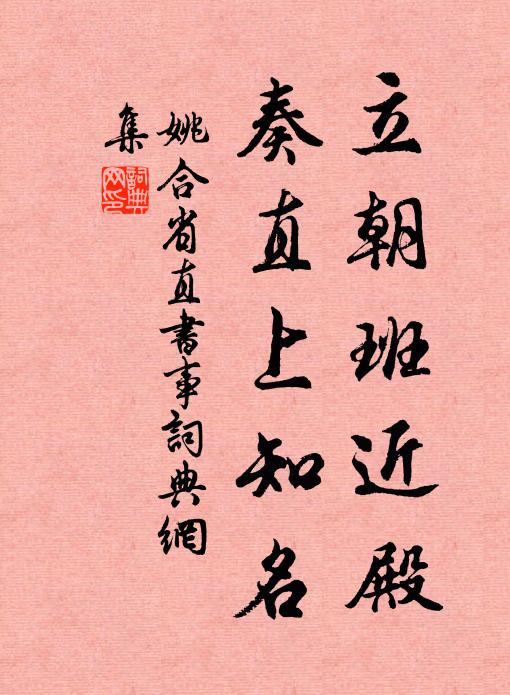 立朝班近殿
奏直上知名
姚合省直書事詞典網
集
詞典
网印